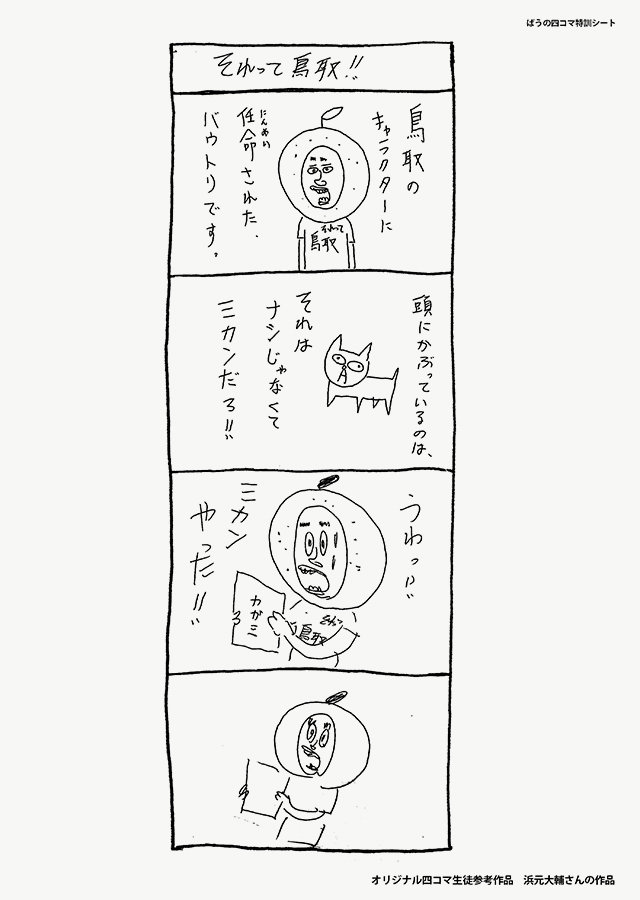 ぱうの四コマ特訓シート
それって鳥取!!
鳥取の
キャラクターに
任命された、
にんめい
バウトリです。
それって
鳥取
頭にかぶっているのは、
それは
ナシじゃなくて
ミカンだろ!!
うわっ!!
ミカン
やった!!
カガミ
それって
鳥取
オリジナル四コマ生徒参考作品 浜元大輔さんの作品